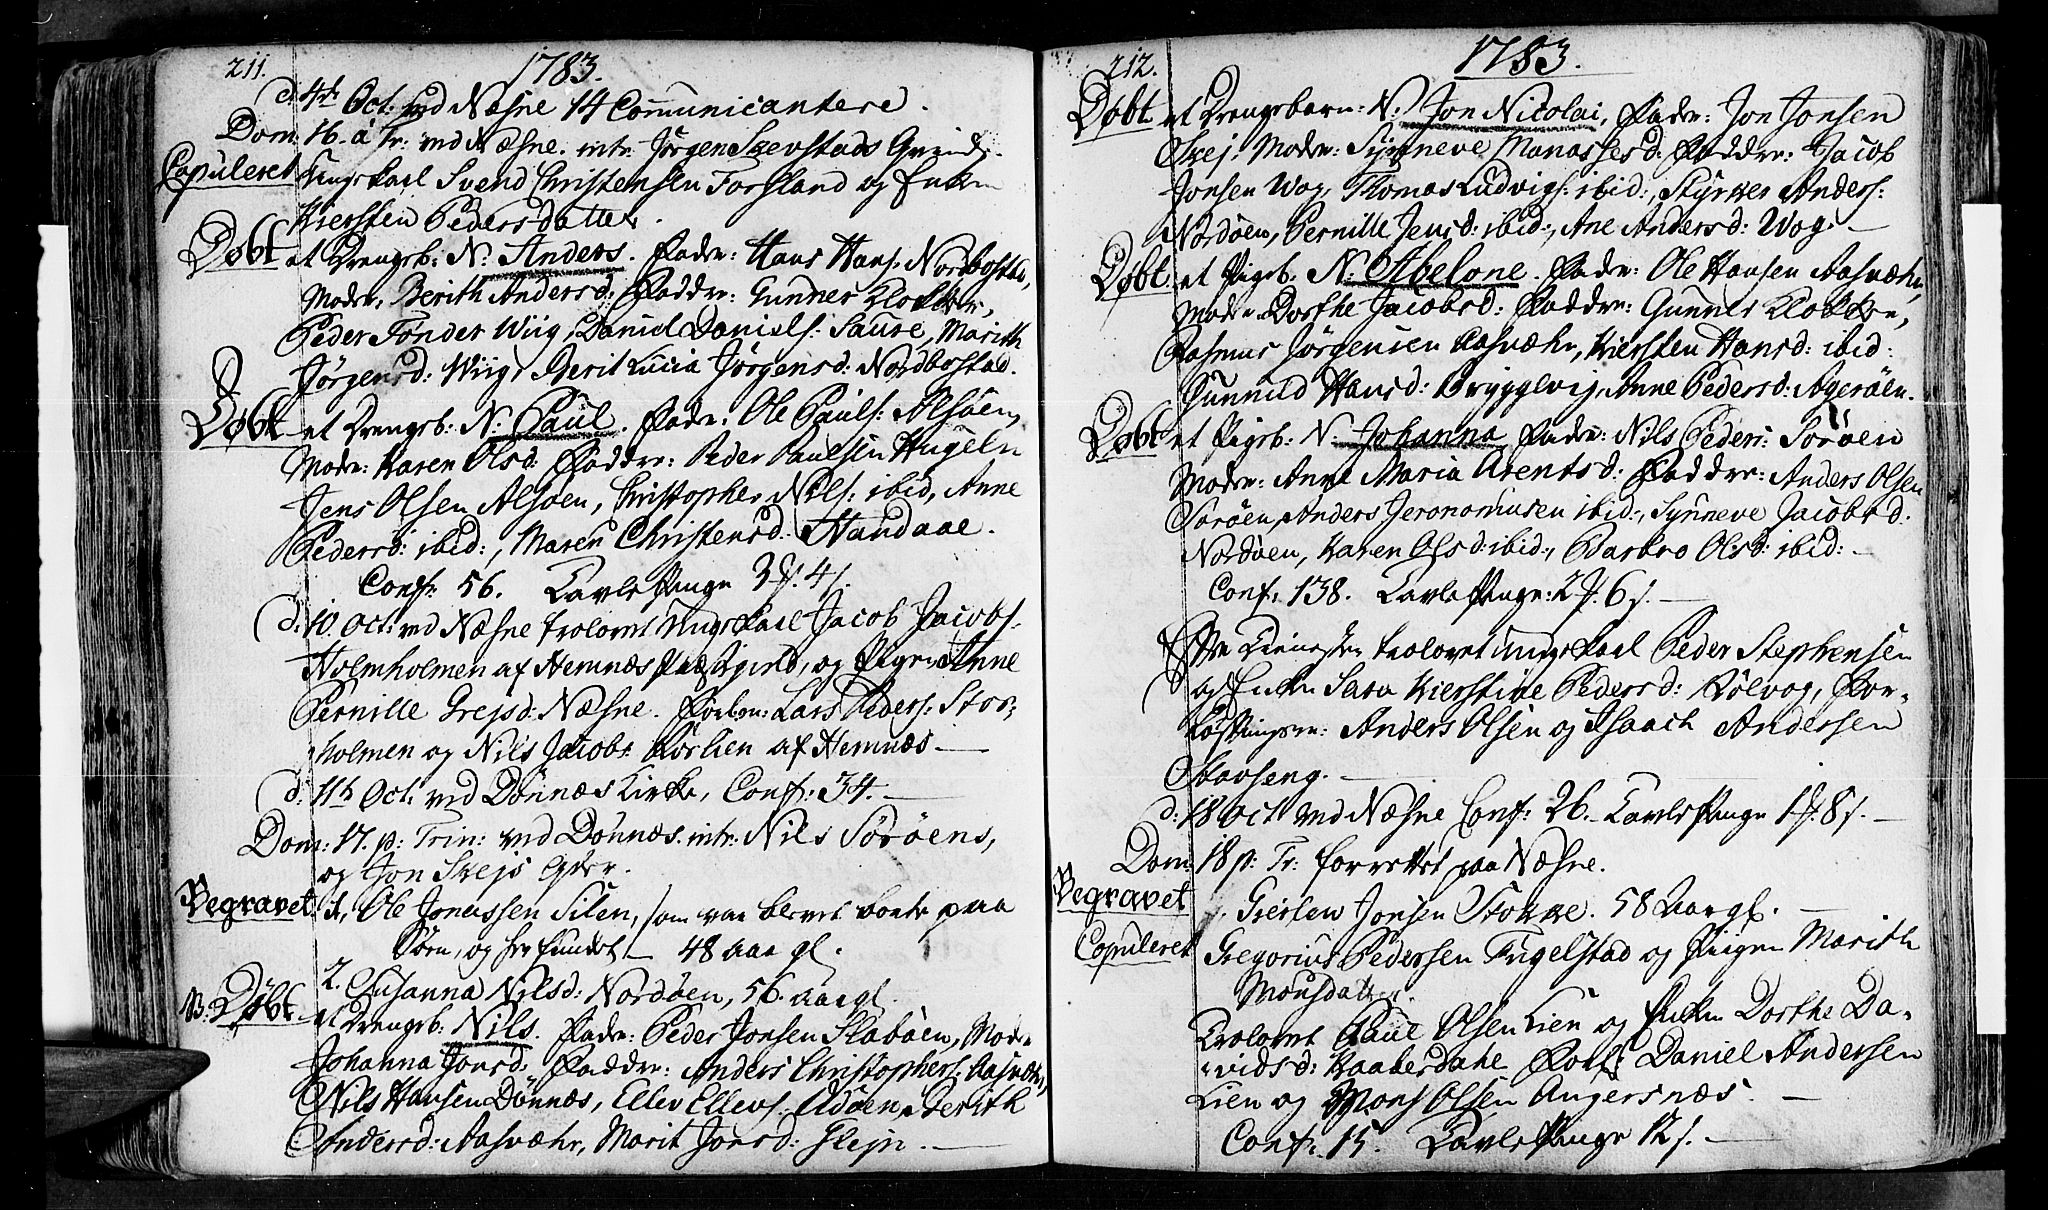 211. 1783.
d: 4de Oct: ved Næsne 14 Communicantere.
Dom: 16. à Tr: ved Næsne. intr: Jørgen Skevstads
Copuleret Ungkarl Svend Christensen Forsland og Enken
Kiersten Pedersdatter.
Døbt et Drengeb: N: Anders. Fader: Hans Hans: Nordbostad,
Moder, Berith Andersd: Faddre: Gunner Klokker,
Peder Tønder Wiig, Daniel Daniels: Saure, Marith
Jørgensd: Wiig, Berit Lucia Jørgensd: Nordbostad.
Døbt et Drengeb: N: Paul. Fader: Ole Pauls: Alsøen,
Moder: Karen Olsd: Faddre: Peder Paulsen Hugeln
Jens Olsen Alsøen, Christopher Nils: ibid, Anne
Pedersd: ibid:, Maren Christensd: Handaae.
Conf: 56. Tavle Penge 4 s.
d: 10. Oct: ved Næsne trolovet Ungkarl Jacob Jacobs:
Holmholmen af Hemnæs Præstegield, og Pigen Anne
Pernille Grejsd: Næsne. Forlov: Lars Peders: Stor-
holmen og Nils Jacobs: af Hemnæs —
d: 11te Oct: ved Dønnæs Kirke, Conf: 34. —
Dom: 17. p: Trin: ved Dønnæs. intr: Nils Sørøens,
og Jon Skejs
Begravet: 1, Ole Jonassen Silen, som var blevet borte paa
Søen, og her fundet — 48 Aar gl.
2. Susanna Nilsd: Nordøen, 56. Aar gl.
NB: Døbt et Drengeb: Nils. Fader: Peder Jonsen Slabøen, Moder
Johanna Jonsd: Faddre: Anders Christophers: Aasvæhr,
Nils Hansen Dønnæs, Ellev Ellevs: Berith
Andersd: Aasvæhr, Marit Jonsd: Slejn. —
212. 1783.
Døbt et Drengebarn: N: Jon Nicolai, Fader: Jon Jonsen
Skej: Moder: Synneve Manassesd: Faddre: Jacob
Jonsen Wog, Thomas Ludvigs: ibid:, Styrker Anders:
Nordøen, Pernille Jensd: ibid:, Ane Andersd: Wog. —
Døbt et Pigeb: N: Abelone. Fader: Ole Hansen Aasvæhr,
Moder Dorthe Jacobsd: Faddre: Gunner Klokker,
Rasmus Jørgensen Aasvæhr, Kiersten Hansd: ibid:
Gunnild Hansd: Brygglvig, Anne Pedersd: Agerøen.
Døbt et Pigeb: N: Johanna, Fader: Nils Peders: Sørøen
Moder: Anne Maria Arentsd: Faddre: Anders Olsen
Sørøen, Anders Jeronomusen ibid:, Synneve Jacobsd:
Nordøen, Karen Olsd: ibid:, Barbro Olsd: ibid: —
Conf: 138. Tavle Penge: 6 s. —
Efter Tienesten trolovet Ungkarl Peder Stephensen
og Enken Sara Kierstine Pedersd: Rølvog, For-
Anders Olsen og Isaach Andersen
Stavseng. —
d: 18 Oct ved Næsne Conf: 26. Tavle Penge 8 s. —
Dom: 18 p: Tr: forrettet paa Næsne.
Begravet Jonsen Stokke. 58 Aar gl. —
Copuleret Gregorius Pedersen Fugelstad og Pigen Marith
Monsdatter.
Trolovet Paul Olsen Lien og Enken Dorthe Da-
vidsd: Kaaberdahe Forl: Daniel Andersen
Lien og Mons Olsen Angersnæs. —
Conf: 15. Tavle Penge 12 s. —